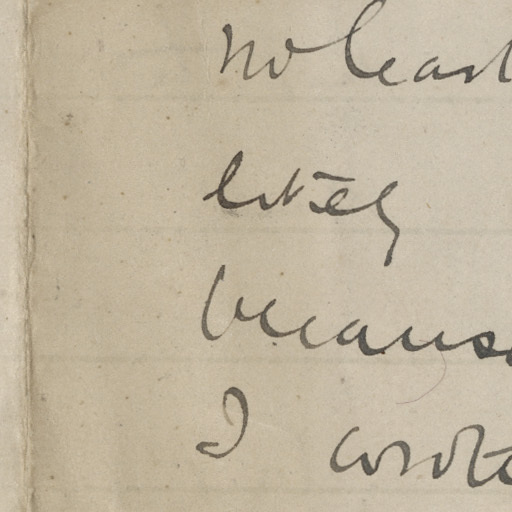 no least
likely
because
I wrote